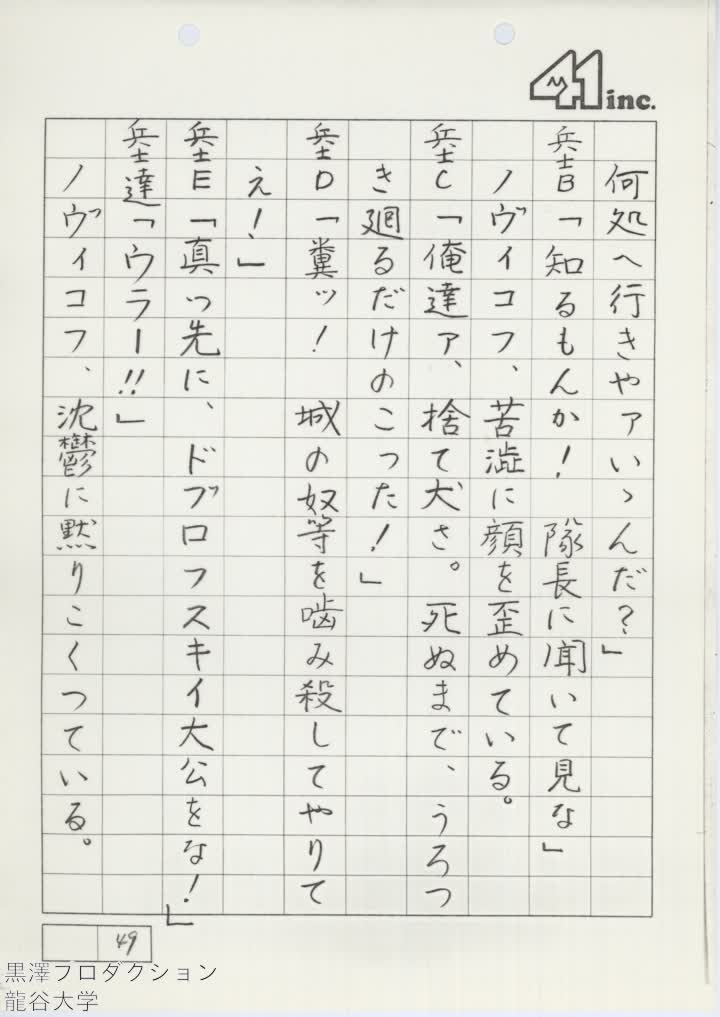 41 inc.
何処へ行きやァいゝんだ？」
兵士B「知るもんか！　隊長に聞いて見な」
ノヴイコフ、苦澁に顔を歪めている。
兵士C「俺達ァ、捨て犬さ。死ぬまで、うろつ
き廻るだけのこった！」
兵士D「糞ッ！　城の奴等を噛み殺してやりて
え！」
兵士E「真っ先に、ドブロフスキイ大公をな！」
兵士達「ウラー!!」
ノヴィコフ、沈鬱に黙りこくつている。
49
黒澤プロダクション
龍谷大学